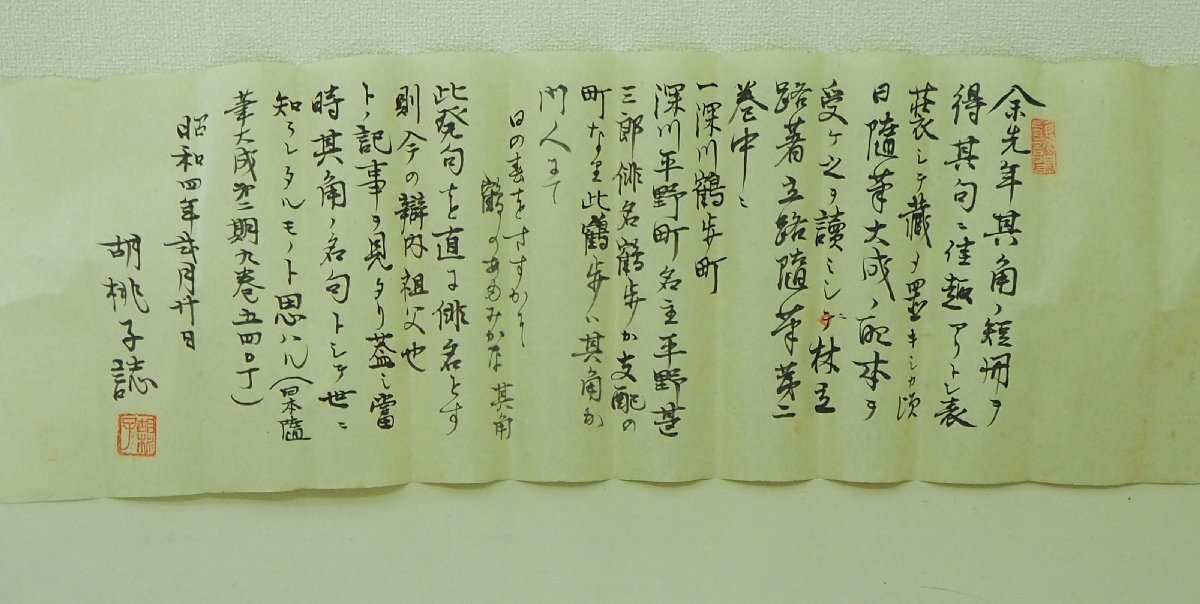 余先年其角ノ短冊ヲ
得其句ニ佳趣アリトシ表
装シテ蔵メ置キシカ頃
日随筆大成ノ配本ヲ
受ケ之ヲ讀ミシニ林立
路著立路随筆第二
巻中ニ
一深川鶴歩町
深川平野町名主平野甚
三郎俳名鶴歩か支配の
町なり此鶴歩ハ其角か
門人にて
日の春をさすかに
鶴のあゆみかな 其角
此発句を直に俳名とす
則今の辯内祖父也
トノ記事ヲ見タリ蓋シ當
時其角ノ名句トシテ世ニ
知ラレタルモノト思ハル(日本隨
筆大成第二期九巻五四〇丁)
昭和四年弐月廿日
胡桃子誌